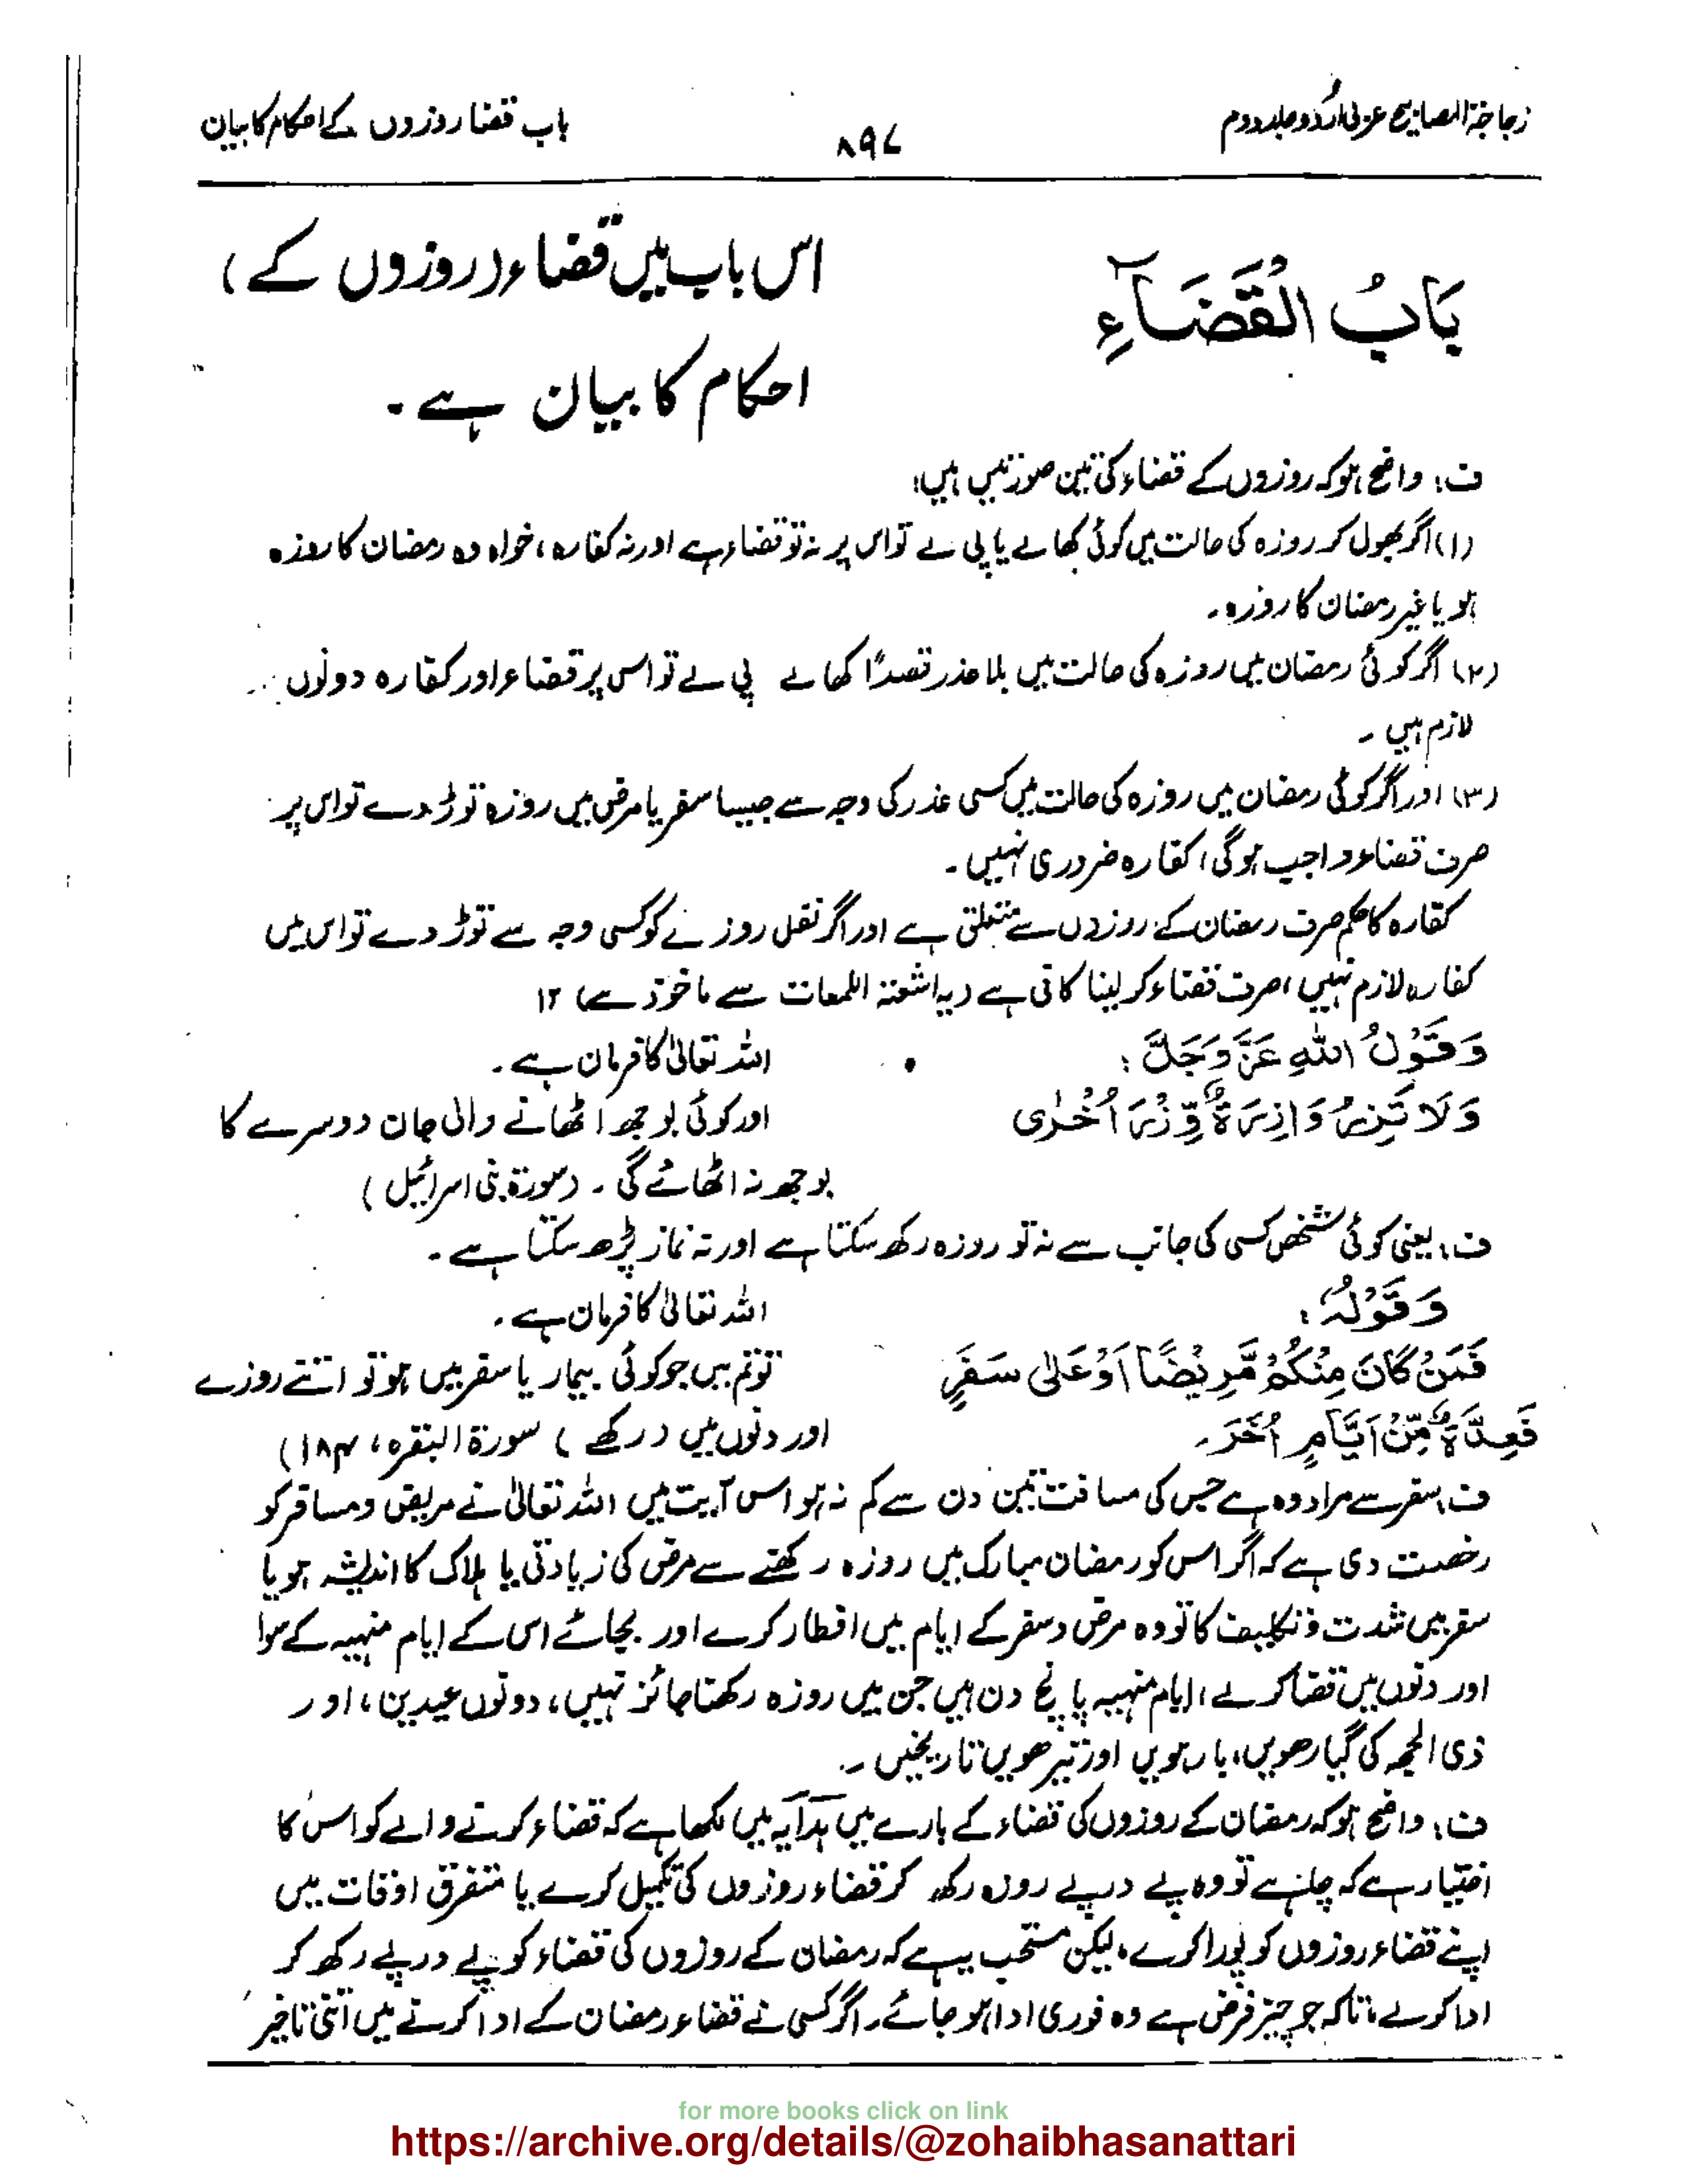 زجاجۃ المصابیح عربی اُردو جلد دوم
۸۹۷
باب قضا روزوں کے احکام کا بیان
بَابُ الْقَضَآءِ
اس باب میں قضاء (روزوں کے)
احکام کا بیان ہے۔
ف: واضح ہو کہ روزوں کے قضاء کی تین صورتیں ہیں:
(۱) اگر بھول کر روزہ کی حالت میں کوئی کھا لے یا پی لے تو اس پر نہ تو قضاء ہے اور نہ کفارہ، خواہ وہ رمضان کا روزہ
ہو یا غیر رمضان کا روزہ۔
(۲) اگر کوئی رمضان میں روزہ کی حالت میں بلا عذر قصدًا کھا لے پی لے تو اس پر قضاء اور کفارہ دونوں
لازم ہیں۔
(۳) اور اگر کوئی رمضان میں روزہ کی حالت میں کسی عذر کی وجہ سے جیسا سفر یا مرض میں روزہ توڑ دے تو اس پر
صرف قضاء واجب ہوگی، کفارہ ضروری نہیں۔
کفارہ کا حکم صرف رمضان کے روزوں سے متعلق ہے اور اگر نفل روزے کو کسی وجہ سے توڑ دے تو اس میں
کفارہ لازم نہیں، صرف قضاء کر لینا کافی ہے (یہ اشعۃ اللمعات سے ماخوذ ہے) ۱۲
وَقَوْلُ اللّٰهِ عَزَّ وَجَلَّ:
اللہ تعالیٰ کا فرمان ہے۔
وَلَا تَزِرُ وَازِرَةٌ وِّزْرَ اُخْرٰى
اور کوئی بوجھ اٹھانے والی جان دوسرے کا
بوجھ نہ اٹھائے گی۔ (سورۃ بنی اسرائیل)
ف: یعنی کوئی شخص کسی کی جانب سے نہ تو روزہ رکھ سکتا ہے اور نہ نماز پڑھ سکتا ہے۔
وَقَوْلُهُ:
اللہ تعالیٰ کا فرمان ہے۔
فَمَنْ كَانَ مِنْكُمْ مَّرِيْضًا اَوْ عَلٰى سَفَرٍ
تو تم میں جو کوئی بیمار یا سفر میں ہو تو اتنے روزے
فَعِدَّةٌ مِّنْ اَيَّامٍ اُخَرَ۔
اور دنوں میں (رکھے) سورۃ البقرہ، ۱۸۴)
ف: سفر سے مراد وہ ہے جس کی مسافت تین دن سے کم نہ ہو اس آیت میں اللہ تعالیٰ نے مریض و مسافر کو
رخصت دی ہے کہ اگر اس کو رمضان مبارک میں روزہ رکھنے سے مرض کی زیادتی یا ہلاک کا اندیشہ ہو یا
سفر میں شدت و تکلیف کا تو وہ مرض و سفر کے ایام میں افطار کرے اور بجائے اس کے ایام منہیہ کے سوا
اور دنوں میں قضا کر لے، ایام منہیہ پانچ دن ہیں جن میں روزہ رکھنا جائز نہیں، دونوں عیدین، اور
ذی الحجہ کی گیارھویں، بارہویں اور تیرھویں تاریخیں۔
ف: واضح ہو کہ رمضان کے روزوں کی قضاء کے بارے میں ہدایہ میں لکھا ہے کہ قضاء کرنے والے کو اس کا
اختیار ہے کہ چاہے تو وہ پے در پے روزہ رکھ کر قضاء روزوں کی تکمیل کرے یا متفرق اوقات میں
اپنے قضاء روزوں کو پورا کرے، لیکن مستحب یہ ہے کہ رمضان کے روزوں کی قضاء کو پے در پے رکھ کر
ادا کرلے، تاکہ جو چیز فرض ہے وہ فوری ادا ہو جائے۔ اگر کسی نے قضاء رمضان کے ادا کرنے میں اتنی تاخیر
for more books click on link
https://archive.org/details/@zohaibhasanattari